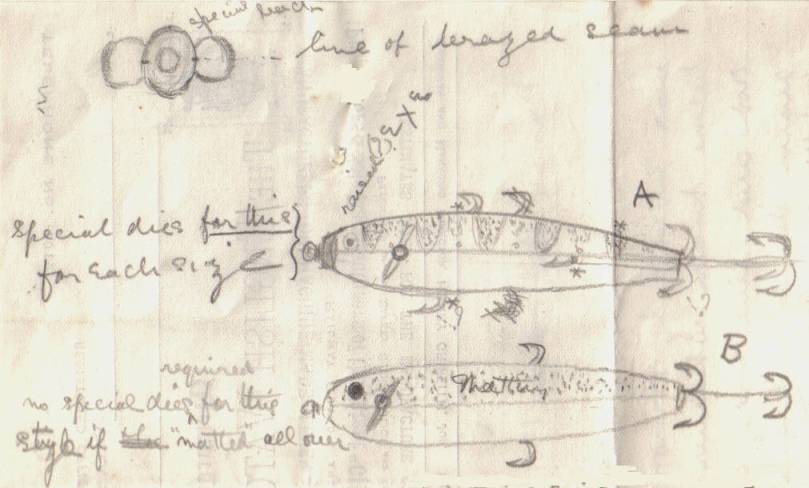 special
line of brazed seam
raised
A
special dies for this
for each size
B
required
no special dies for this
style if "matted" all over
Matting